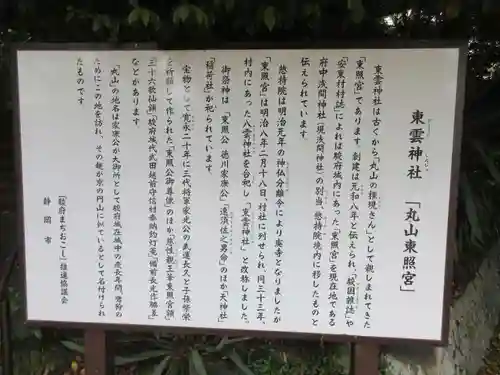 東雲神社 「丸山東照宮」
東雲神社は古くから「丸山の権現さん」として親しまれてきた
「東照宮」であります。創建は元和八年と伝えられ、「駿国雑誌」や
「安東村誌」によれば駿府城内にあった「東照宮」を現在地である
府中浅間神社（現浅間神社）の別当、惣持院境内に移したものと
伝えられています。
惣持院は明治元年の神仏分離令により廃寺となりましたが
「東照宮」は明治八年二月十八日村社に列せられ、同三十三年、
村内にあった八雲神社を合祀し「東雲神社」と改称しました。
御祭神は「東照公 徳川家康公」「須佐之男命」のほか「天神社」
「稲荷社」が祀られています。
宝物として寛永二十年に三代将軍家光公の武運長久と子孫繁栄
を祈願して作られた「東照公御尊像」のほか「慈性親王筆東照宮額」
「三十六歌仙額」「駿府城代武田越前守信村奉納釣灯篭」「備前長光作脇差」
などがあります。
「丸山」の地名は家康公が大御所として駿府城在城中の慶長年間、
ためにこの地を訪れ、その趣が京の円山に似ているとして名付けられ
たものです。
「駿府まちおこし」推進協議会
静岡市